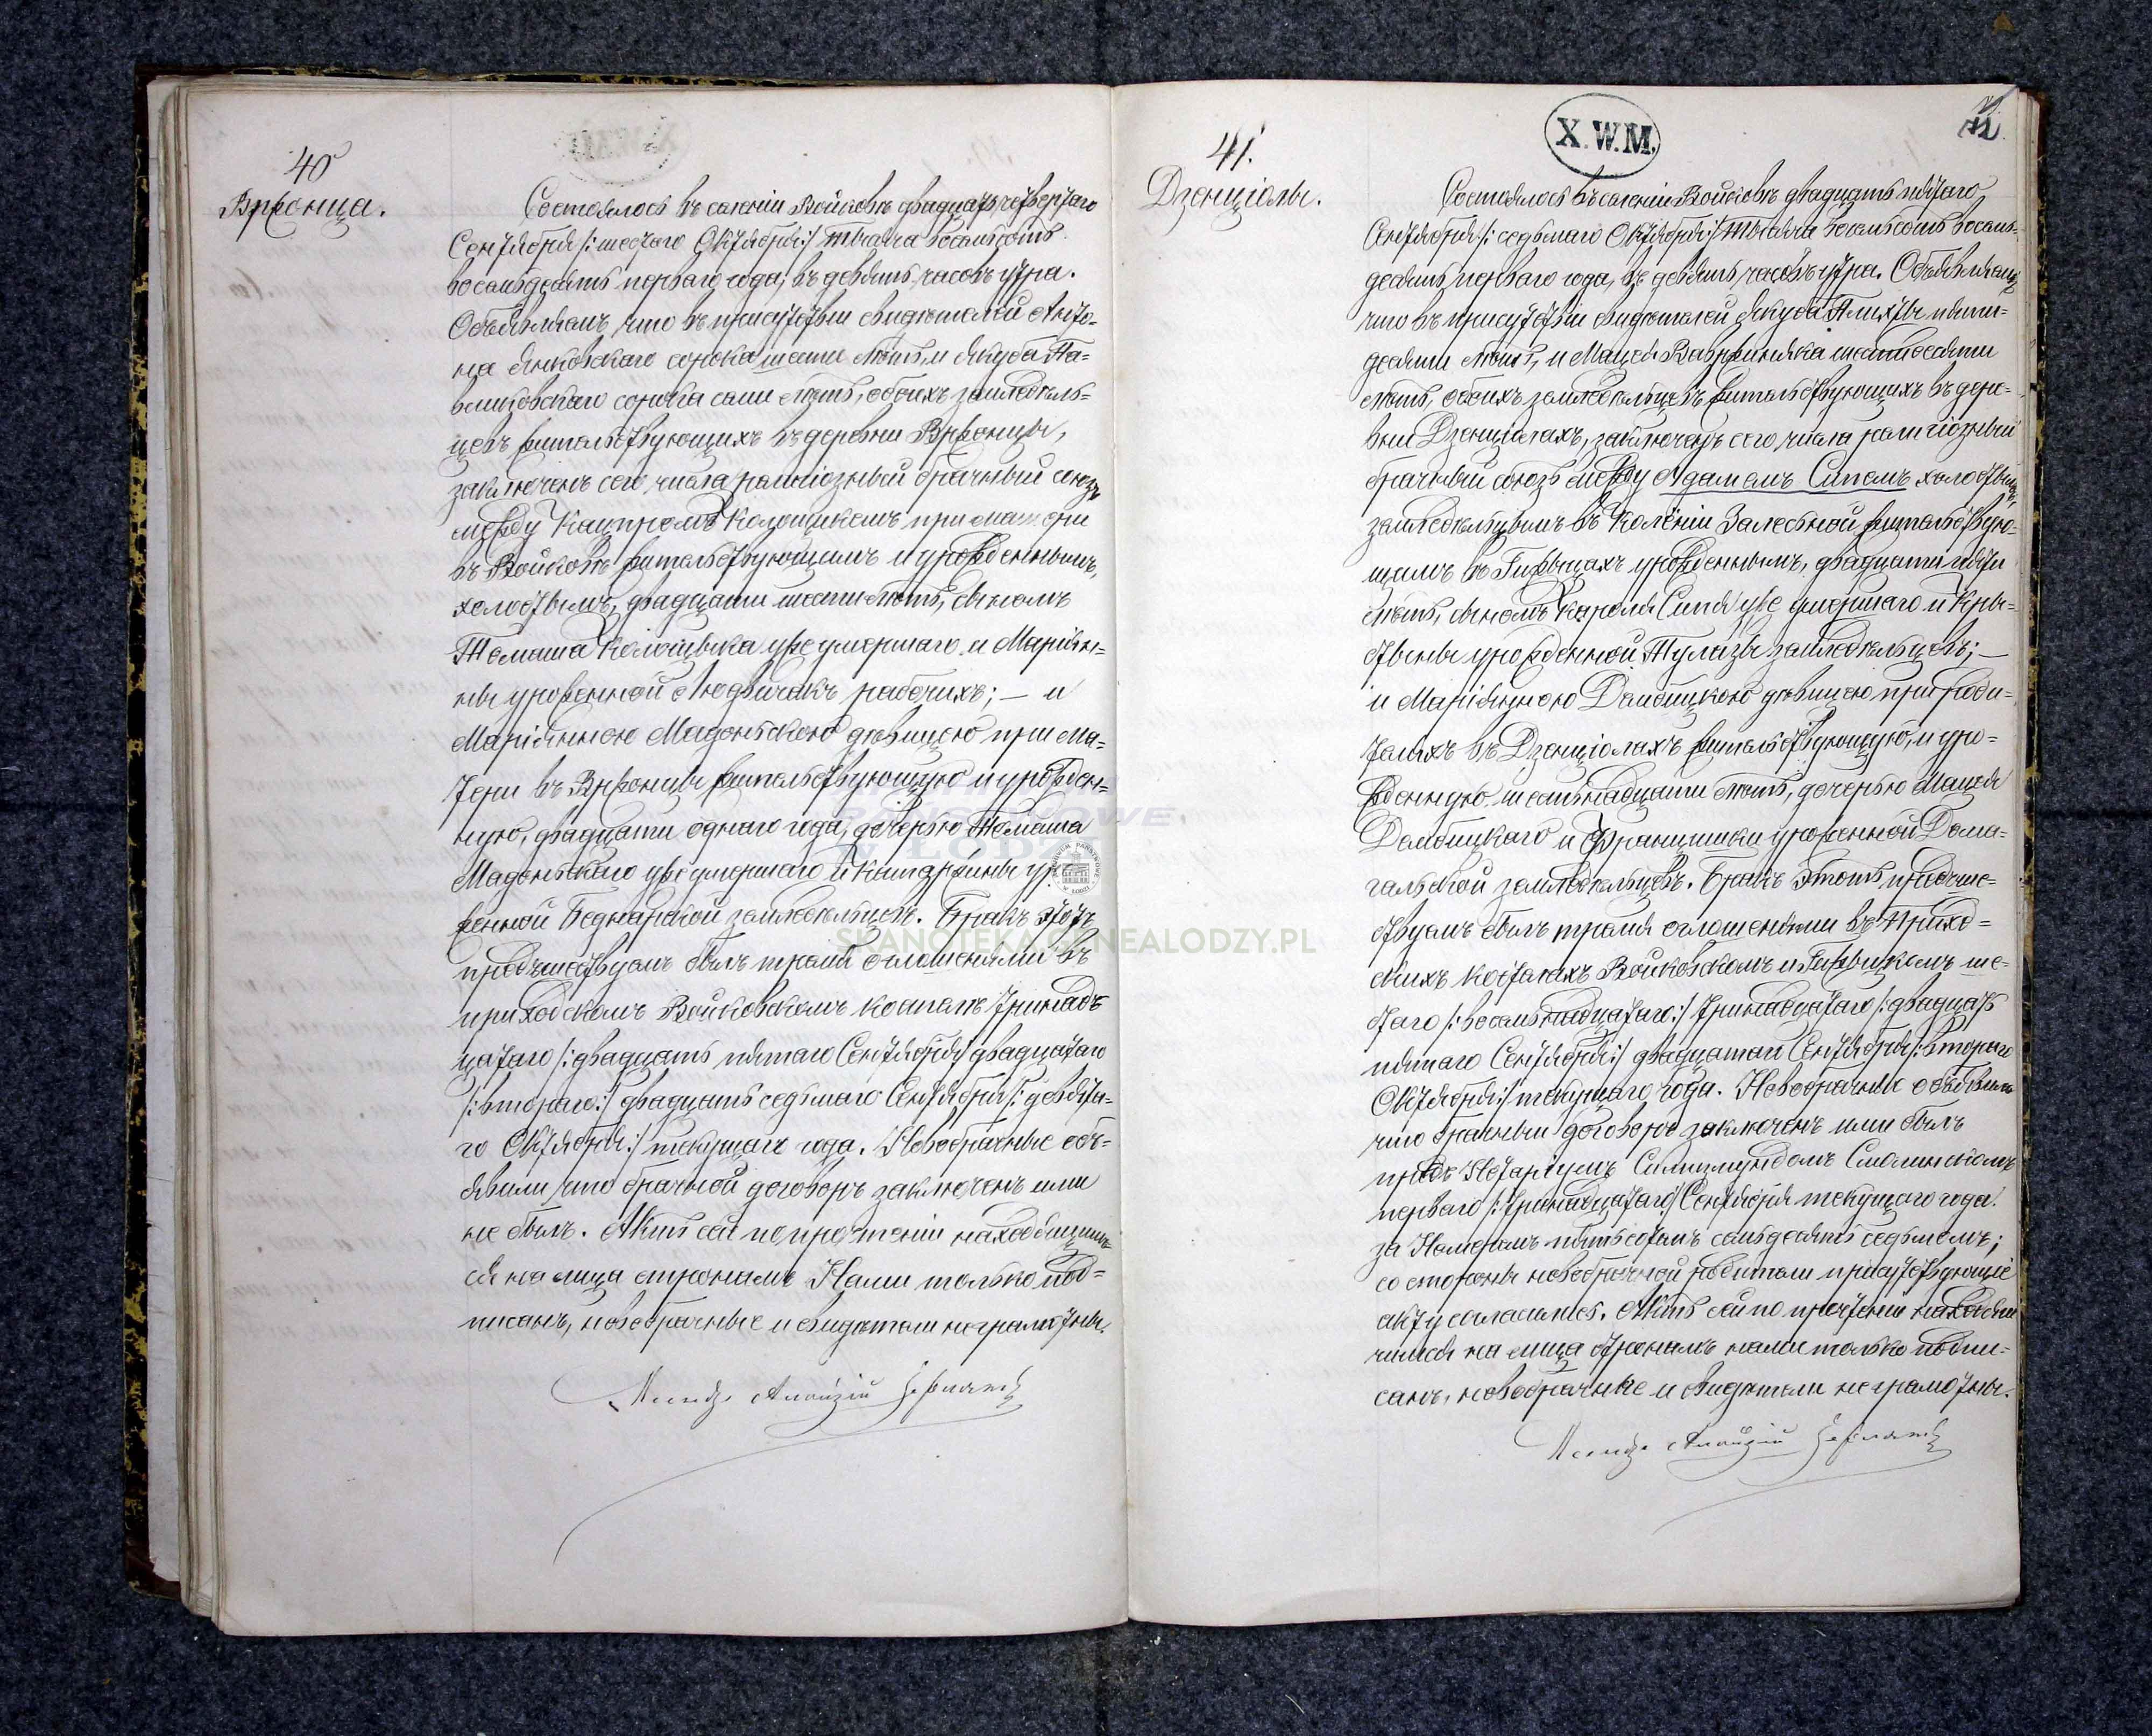 40
Вржонца.
Состоялось въ селеніи Войковѣ двадцать четвертаго
Сентября /:шестаго Октября:/ тысяча восемьсотъ
восемьдесятъ перваго года, въ девять часовъ утра.
Объявляемъ, что въ присутствіи свидѣтелей Анто-
на Янковскаго сорока шести лѣтъ, и Якуба Па-
сорока семи лѣтъ, обоихъ земледѣль-
цевъ жительствующихъ въ деревни Вржонцы,
заключенъ сего числа религіозный брачный союзъ
между Кацпромъ при матери
въ Войковѣ жительствующимъ и урожденнымъ,
холостымъ, двадцати шести лѣтъ, сыномъ
Томаша уже умершаго и Маріян-
ны урожденной Людвичакъ рабочихъ; — и
Маріянною Мадоньскою дѣвицею при ма-
тери въ Вржонцы жительствующую и урожден-
ную, двадцати одного года, дочерью Томаша
Мадоньскаго уже умершаго и Катаржины уро-
женной Беднарской земледѣльцевъ. Бракъ этотъ
предшествуемъ былъ тремя оглошеніями въ
приходскомъ Войковскомъ костелѣ тринад-
цатаго /:двадцать пятаго Сентября/ двадцатаго
/:втораго:/ двадцать седьмаго Сентября /:девята-
го Октября:/ текущаго года. Новобрачные объ-
явили что брачной договоръ заключенъ ими
не былъ. Актъ сей по прочтеніи находящим-
ся на лица сторонамъ Нами только под-
писанъ, новобрачные и свидѣтели неграмотны.
Ксендзъ Алойзій
41.
X.W.M.
Дзенціолы.
Состоялось въ селеніи Войковѣ двадцать пятаго
Сентября /:седьмаго Октября:/ тысяча восемьсотъ восемь-
десятъ перваго года, въ девять часовъ утра. Объявляемъ,
что въ присутствіи свидѣтелей Якуба пяти-
десяти лѣтъ, и Мацея Вавржиняка шестидесяти
лѣтъ, обоихъ земледѣльцевъ жительствующихъ въ дере-
вни Дзенціолахъ, заключенъ сего числа религіозный
брачный союзъ между Адамомъ Сипемъ холостымъ,
земледѣльцемъ въ Колёніи Залесной жительствую-
щимъ въ урожденнымъ, двадцати пяти
лѣтъ, сыномъ Кароля Сипя уже умершаго и Кры-
стыны урожденной земледѣльцевъ; —
и Маріянною Дембицкою дѣвицею при роди-
теляхъ въ Дзенціолахъ жительствующую, и уро-
жденную, шестьнадцати лѣтъ, дочерью Мацея
Дембицкаго и Францишки урожденной Дома-
гальской земледѣльцевъ. Бракъ этотъ предъше-
ствуемъ былъ тремя оглошеніями въ Приход-
скихъ костелахъ Войковскомъ и ше-
стаго /:восемьнадцатаго:/ тринадцатаго /:двадцать
пятаго Сентября:/ двадцатаго Сентября /:втораго
Октября:/ текущаго года. Новобрачные объявили
что брачный договоръ заключенъ ими былъ
предъ Нотаріусомъ Смолинскимъ
перваго /:тринадцатаго/ Сентября текущаго года.
за Номеромъ пятьсотъ семьдесятъ седьмомъ;
со стороны новобрачной родители присутствующіе
акту согласились. Актъ сей по прочтеніи находя-
чимся на лица сторонамъ нами только подпи-
санъ, новобрачные и свидѣтели неграмотны.
Ксендзъ Алойзій
SKANOTEKA.GENEALODZY.PL